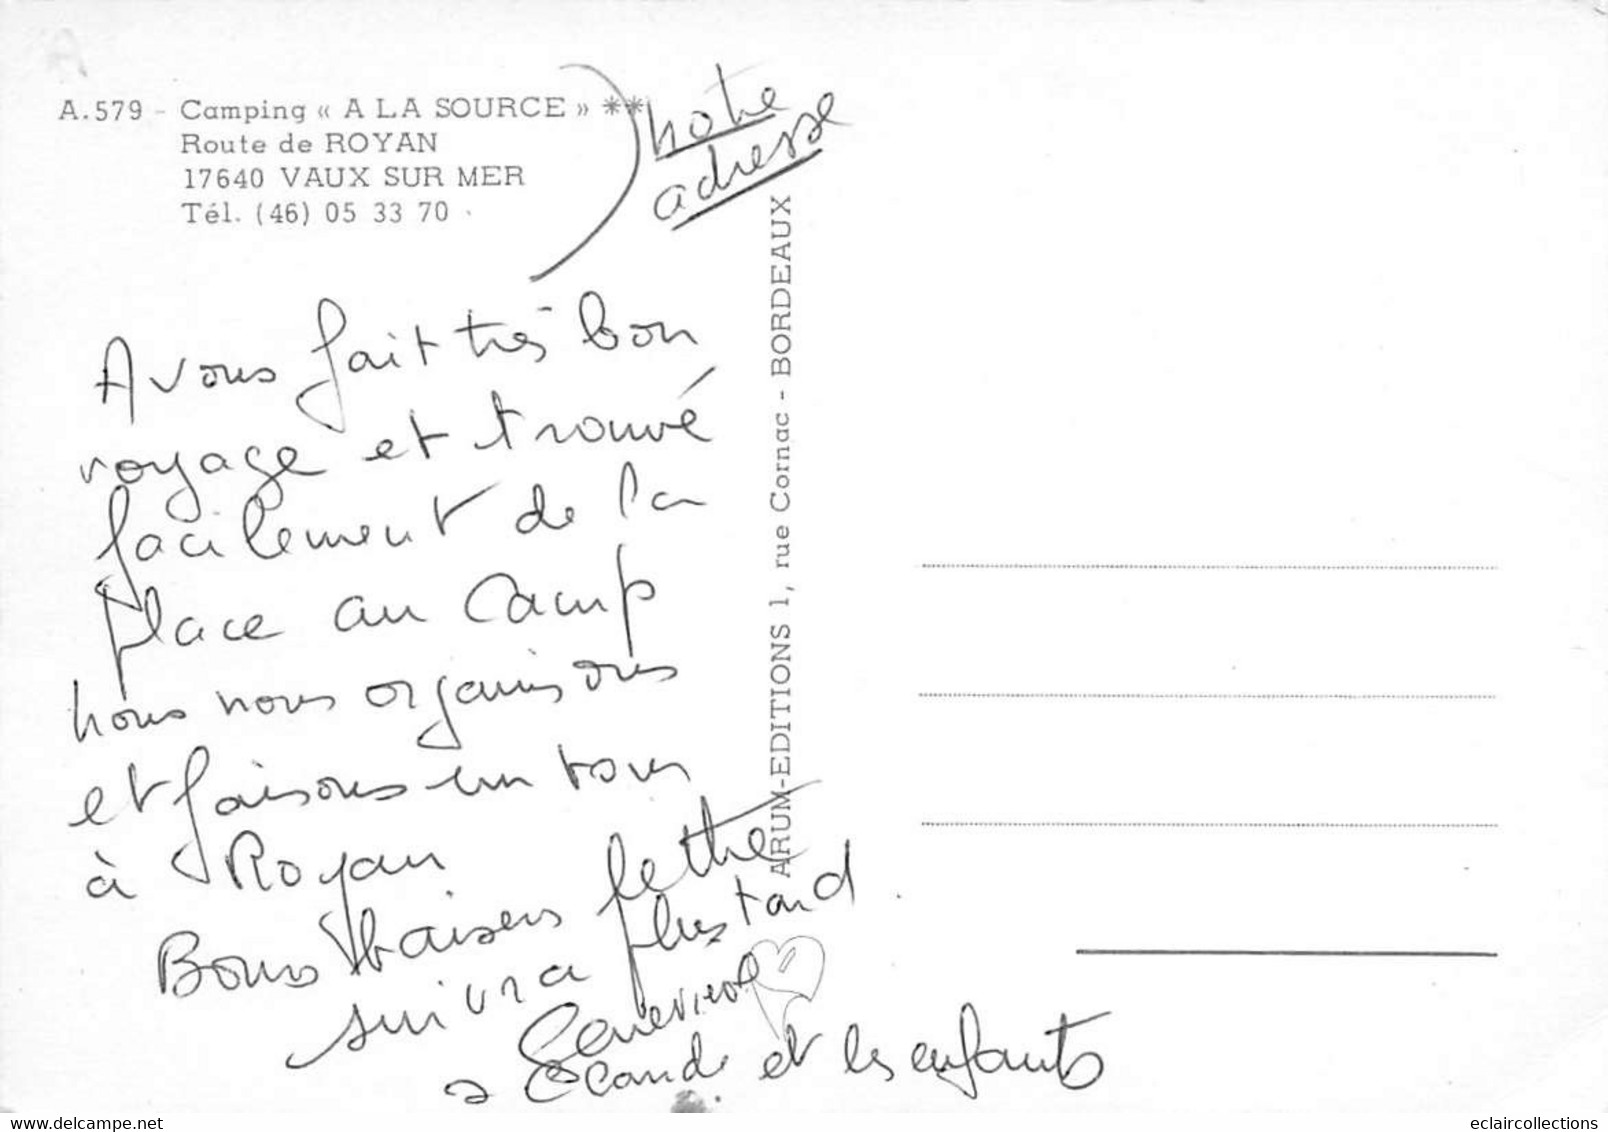 A.579 - Camping « A LA SOURCE » **
Route de ROYAN
17640 VAUX SUR MER
Tél. (46) 05 33 70
notre
adresse
Avons fait très bon
voyage et trouvé
facilement de la
place au Camp
nous nous organisons
et faisons un tour
à Royan
Bons baisers lettre
suivra plus tard
Geneviève
Claude et les enfants
ARUM-EDITIONS 1, rue Cornac - BORDEAUX
delcampe.net
eclaircollections